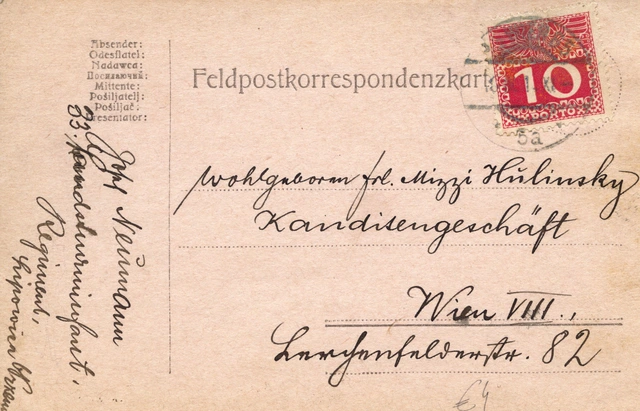 Absender:
Odesílatel:
Nadawca:
Посилаючий:
Mittente:
Pošiljatelj:
Pošiljač:
Presentator:
Feldpostkorrespondenzkarte
10
PORTO
5a
Wohlgeboren Frl. Mizzi Hulinsky
Kanditengeschäft
Wien VIII.,
Lerchenfelderstr. 82
Neumann
33. Landsturminfant.
Regiment,
€4